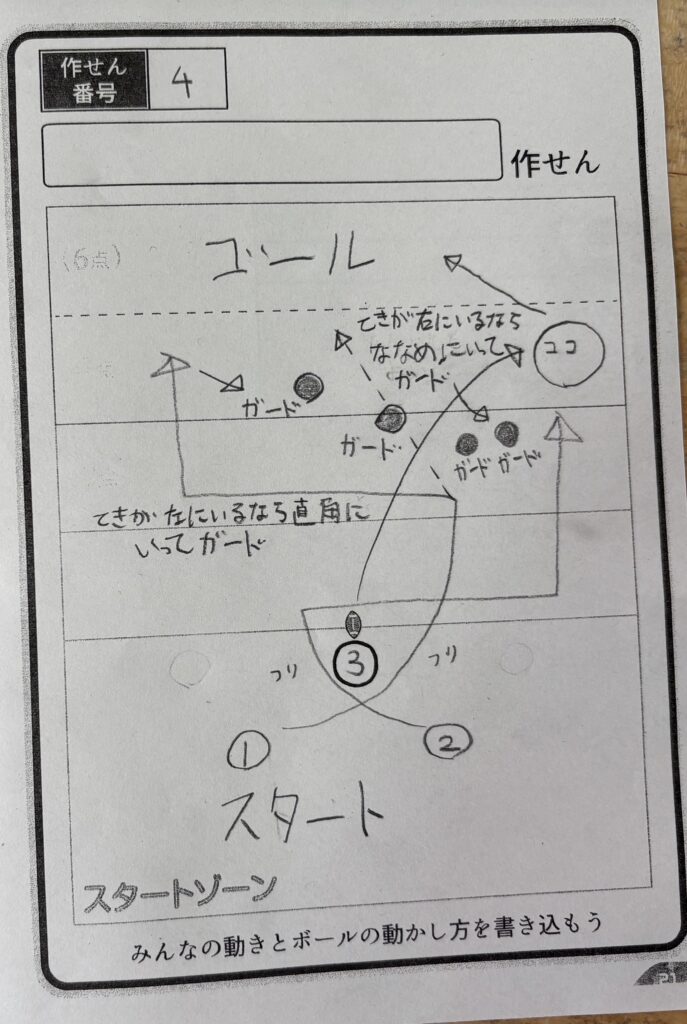 作せん
番号
4
作せん
(6点)
ゴール
てきが右にいるなら
ななめにいって
ガード
ココ
ガード
ガード
ガード ガード
てきが左にいるなら直角に
いってガード
3
フリ
フリ
1
2
スタート
スタートゾーン
みんなの動きとボールの動かし方を書き込もう